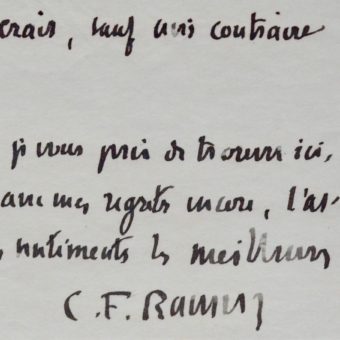 erais, sauf avis contraire
je vous prie de trouver ici,
avec mes regrets encore, l'as-
sentiments les meilleurs
C. F. Ramuz